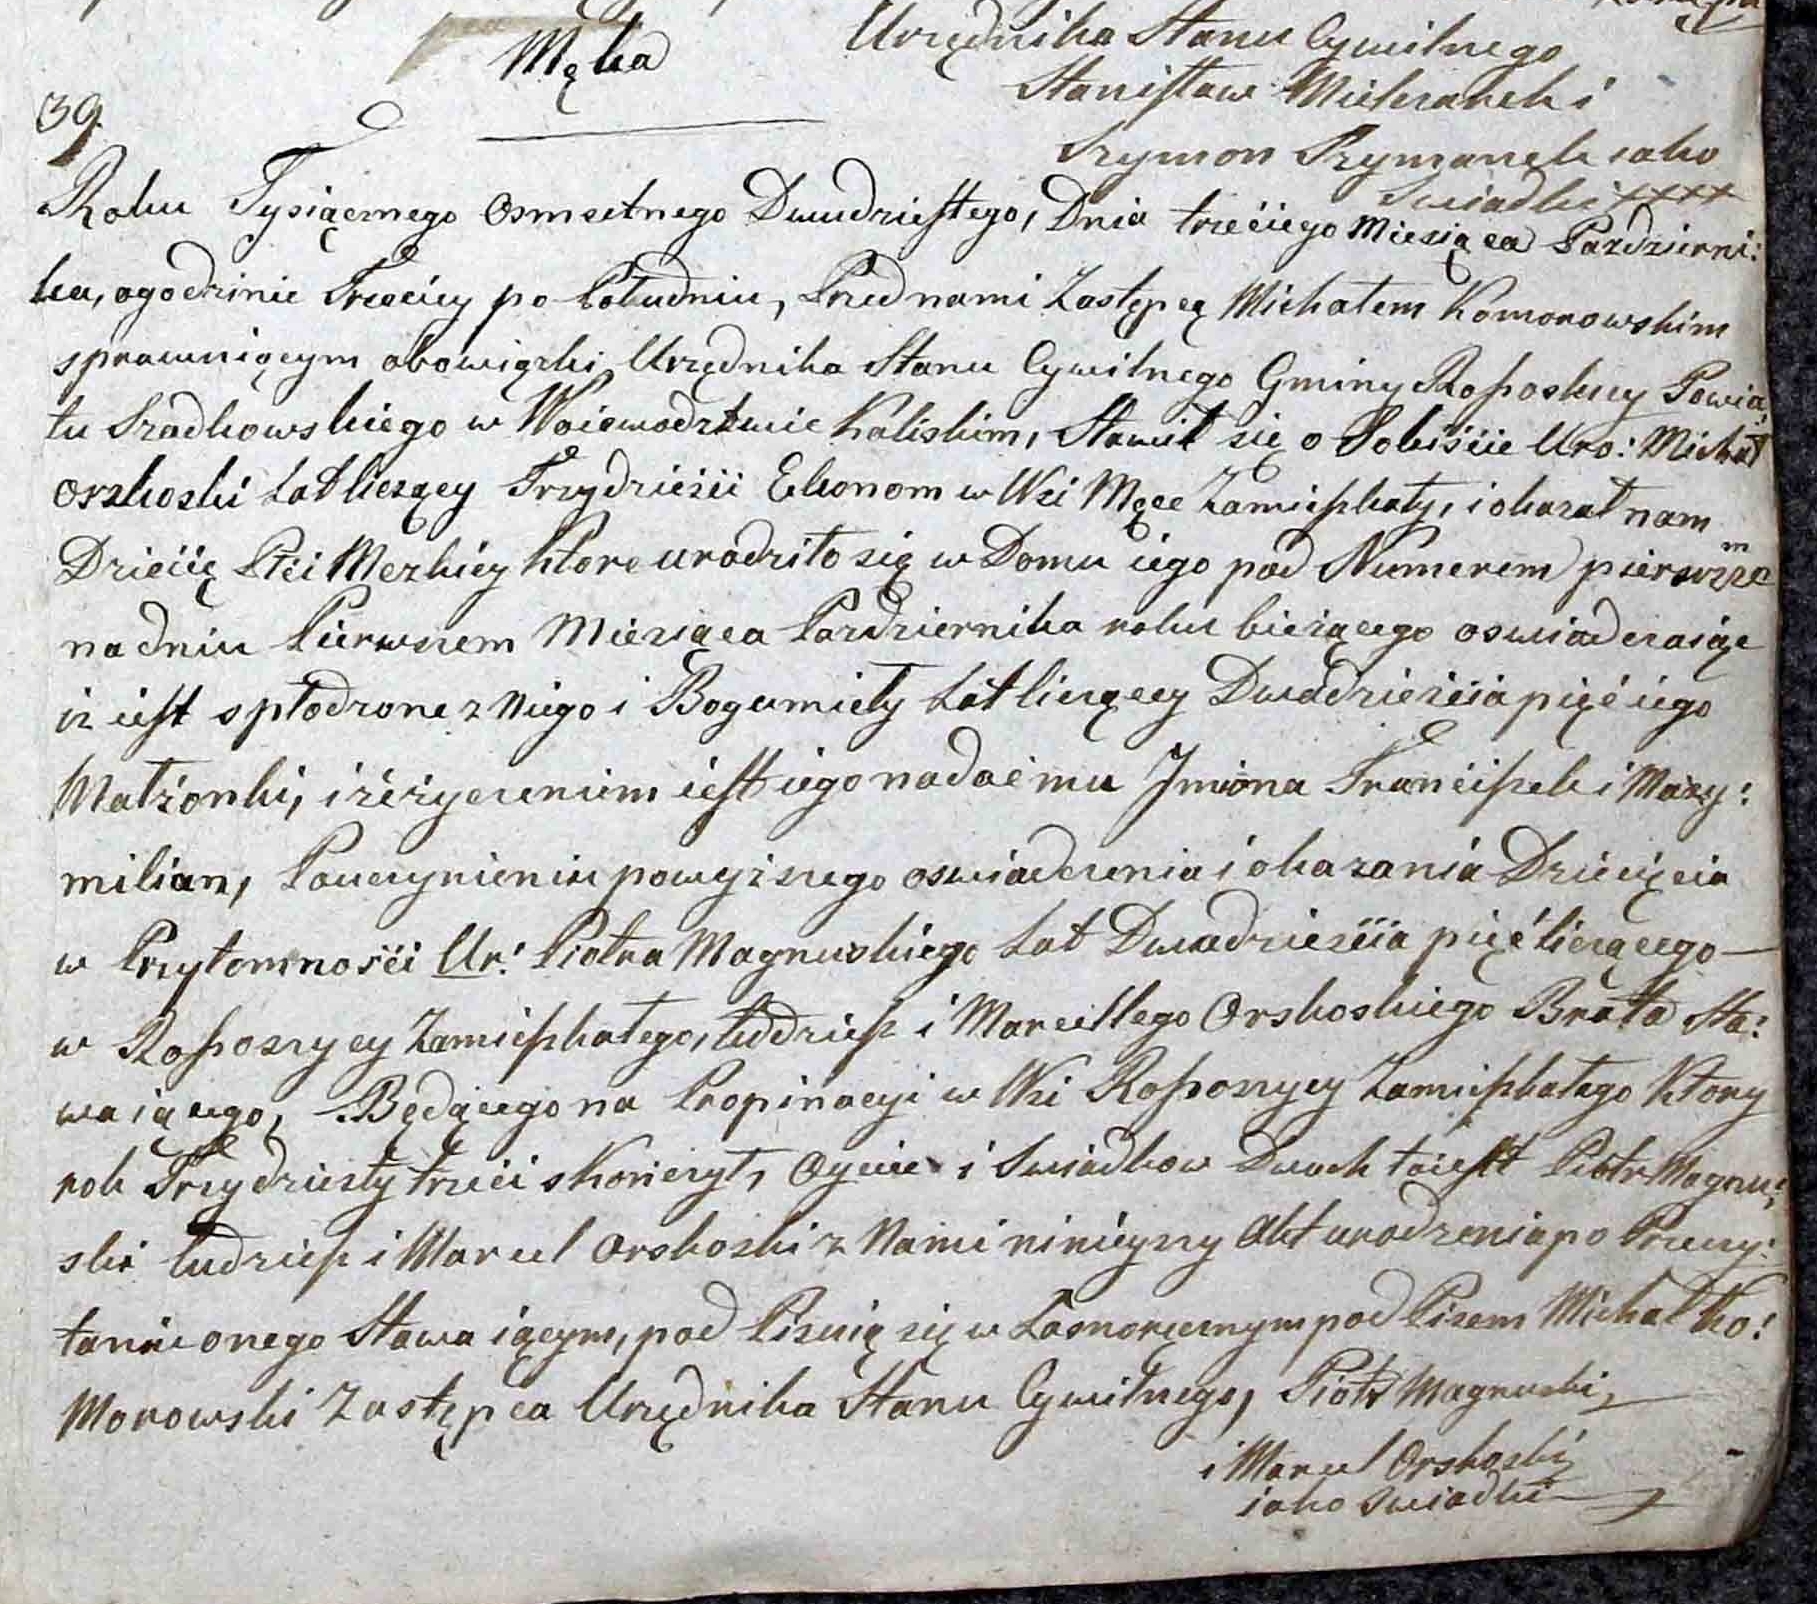 Urzędnika Stanu Cywilnego
Męka
Stanisław
39.
Szymon Szymanek iako
Swiadki xxxx
Roku Tysiącznego Osmsetnego Dwudziestego, Dnia trzeciego Miesiąca Pazdzierni:
ka, ogodzinie Trzeciey po Południu, Przed nami Zastępcą Michałem Komorowskim
sprawuiącym obowiązki Urzędnika Stanu Cywilnego Gminy Rossoskiey Powia:
tu Szadkowskiego w Woiewodztwie Kaliskim, Stawił się o Sobiście Uro: Michał
Orskoski Lat liczący Trzydzieści Ekonom w Wsi Męce Zamieszkały, i okazał nam
Dziecię Płci Mezkiey ktore urodziło się w Domu iego pod Numerem pierwszem
na dniu Pierwszem Miesiąca Pazdziernika roku bieżącego oswiadczaiąc
iż iest spłodzone z Niego i Bogumiły Lat liczącey Dwadzieścia pięć iego
Małżonki, i że życzeniem iest iego nadać mu Jmiona Franciszek i Maxy:
milian, Pouczynieniu powyższego oswiadczenia i okazania Dziecięcia
w Przytomności Ur: Piotra Magnuskiego Lat Dwadzieścia pięć liczącego —
w Rososzycy Zamieszkałego, tudziesz i Marcellego Orskoskiego Brata Sta:
waiącego, Będącego na Propinacyi w Wsi Rososzycy Zamieszkałego Ktory
rok Trzydziesty trzeci skończył, Oyciec i Swiadkow Dwoch toiest Piotr Magnu:
ski tudziesz i Marcel Orskoski z Nami ninieyszy Akt urodzenia po Przeczy:
taniu onego Stawaiącym, pod Pisuią się w Łasnoręcznym pod Pisem Michał Ko:
Morowski Zastępca Urzędnika Stanu Cywilnego, Piotr Magnuski,
i Marcel Orskoski
iako Swiadki